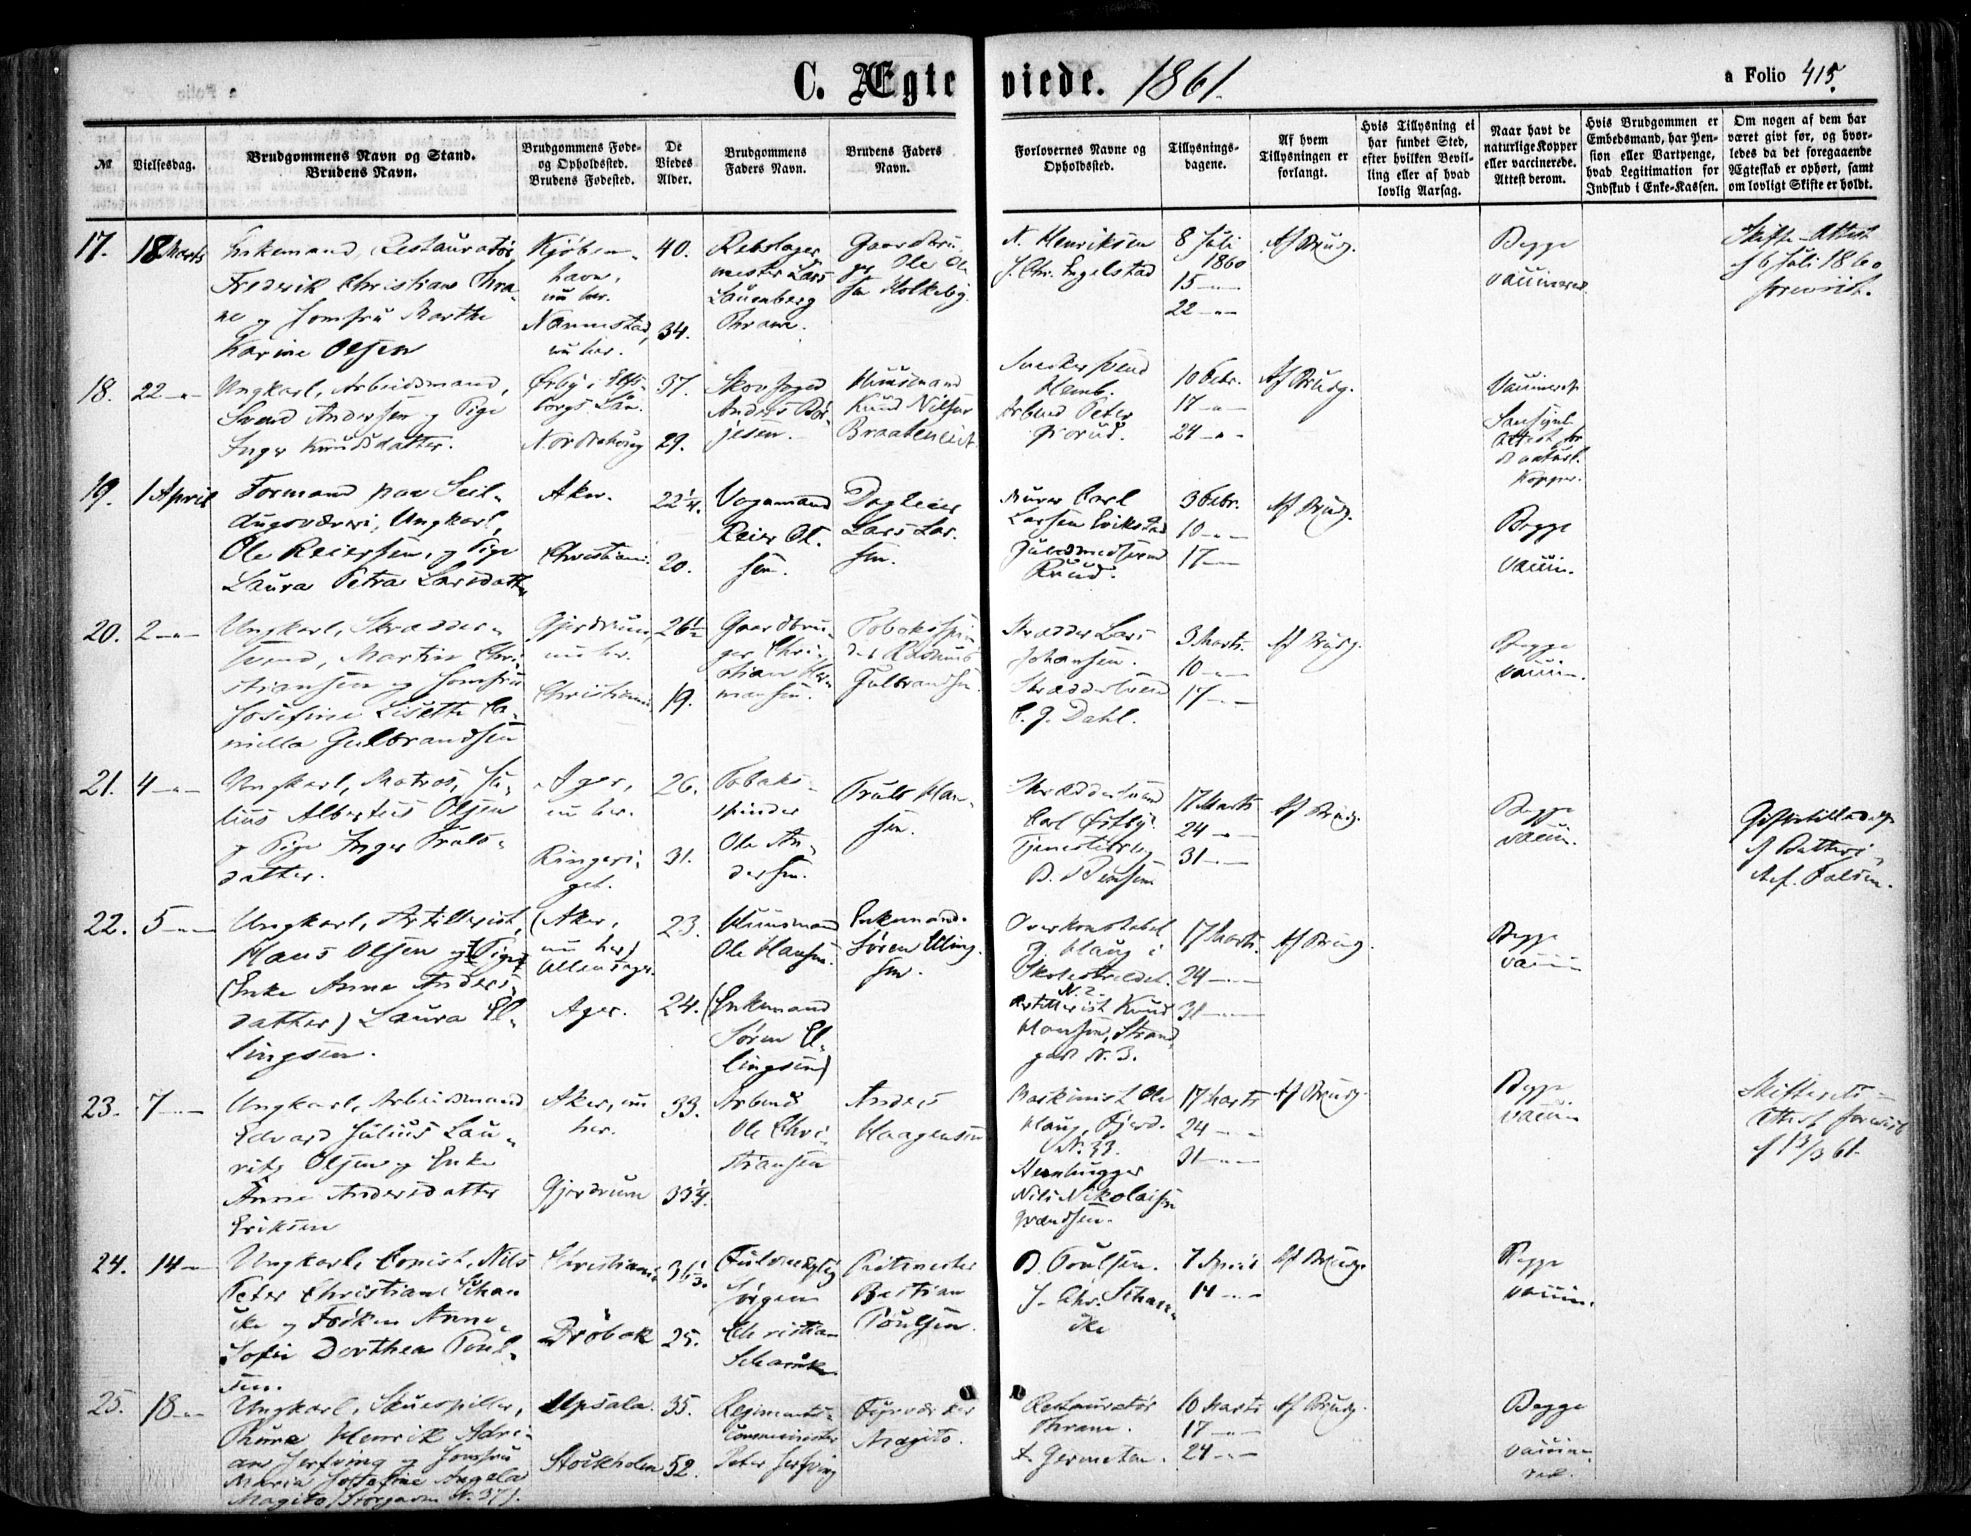 C. Ægteviede. 1861.
a Folio 415.
№
Vielsesdag.
Brudgommens Navn og Stand.
Brudens Navn.
Brudgommens Føde-
og Opholdssted.
Brudens Fødested.
De
Viedes
Alder.
Brudgommens
Faders Navn.
Brudens Faders
Navn.
Forlovernes Navne og
Opholdssted.
Tillysnings-
dagene.
Af hvem
Tillysningen er
forlangt.
Hvis Tillysning ei
har fundet Sted,
efter hvilken Bevil-
ling eller af hvad
lovlig Aarsag.
Naar havt de
naturlige Kopper
eller vaccinerede.
Attest derom.
Hvis Brudgommen er
Embedsmand, har Pen-
sion eller Vartpenge,
hvad Legitimation for
Indskud i Enke-Kassen.
Om nogen af dem har
været gift før, og hvor-
ledes da det foregaaende
Ægteskab er ophørt, samt
om lovligt Skifte er holdt.
17.
18 Marts
Enkemand, Restauratør
Frederik Christian Thra-
ne og Jomfru Marthe
Karine Olsen
Kjøben-
havn,
nu her.
Nannestad,
nu her.
40.
34.
Rebslager
mester Lars
Lauenberg
Thrane.
Gaardbru-
ger Ole Ol-
sen Holkeby.
N. Henriksen
J. Chr. Engelstad
8 Juli
1860
15 —
22 —
Af Brudg.
Begge
vaccinered.
Skifte-Attest
af 6 Juli 1860
forevist.
18.
22 —
Ungkarl, Arbeidsmand,
Svend Andersen og Pige
Inger Knudsdatter.
37.
29.
Skovfoged
Anders Bør-
jesen.
Huusmand
Knud Nilsen
Braateneiet
10 Febr.
17 —
24 —
Af Brudg.
19.
1 April
Formand paa Seil-
dugsværeri, Ungkarl,
Ole Reiersen, og Pige
Laura Petra Larsdatter
Aker.
Christiania.
22 1/4.
20.
Vognmand
Reier Ol-
sen.
Dagleier
Lars Lar-
sen.
Murer Carl
Larsen
Guldsmedsvend
Ruud.
3 Febr.
10 —
17 —
Af Brudg.
Begge
vaccin.
20.
2 —
Ungkarl, Skrædder-
svend, Martin Chri-
stiansen og Jomfru
Josefine Lisette Ca-
milla Gulbrandsen
Gjerdrum,
nu her.
Christiania
26 1/2
19.
Gaardbru-
ger Chri-
stian Her-
mansen.
Tobaksspin-
der Rasmus
Gulbrandsen.
Skrædder Lars
Johansen.
Skræddersvend
C. G. Dahl.
3 Marts.
10 —
17 —
Af Brudg.
Begge
vaccin.
21.
4 —
Ungkarl, Matros, Ju-
lius Albertus Olsen
og Pige Inger Truls-
datter.
Ager,
nu her.
Ringeri-
get.
26.
31.
Tobaks-
spinder
Ole An-
dersen.
Truls Han-
sen.
Skræddersvend
Carl Østby.
17 Marts
24 —
31 —
Af Brudg.
Begge
vaccin.
22.
5 —
Ungkarl, Artillerist,
Hans Olsen og Pige
(Enke Anne Anders-
datter) Laura El-
lingsen.
(Aker,
nu her)
Ullensager.
Ager.
23.
24.
Huusmand
Ole Hansen.
(Enkemand
Søren El-
lingsen)
Enkemand
Søren Elling-
sen.
Overkonstabel
Haug i
N. 2.
Artillerist Knud
Hansen, Strand
gad. N. 3.
17 Marts.
24 —
31 —
Af Brudg.
Begge
vaccin
23.
7 —
Ungkarl, Arbeidsmand
Edvard Julius Lau-
ritz Olsen og Enke
Anne Andersdatter
Eriksen
Aker, nu
her.
Gjerdrum
33.
33 1/4.
Arbmd
Ole Chri-
stiansen
Anders
Haagensen
Maskinist Ole
Haug,
N. 33.
Steenhugger
Nils Nikolaisen
17 Marts
24 —
31 —
Af Brudg.
Begge
vaccin
Skifterets-
Attest forevist
af 13/3 61.
24.
14 —
Ungkarl, Copist, Nils
Peter Christian Schan
cke og Frøken Anne
Sofie Dorthea Poul-
sen.
Christiania
Drøbak
36 1/3.
25.
Fuldmægtig
Jørgen
Christian
Schancke
Ritmester
Bastian
Poulsen.
B. Poulsen.
J. Chr. Schan-
cke
7 April
14 —
Af Brudg.
Begge
vaccin.
25.
18 —
Ungkarl, Skuespiller,
Thure Henrik Adri-
an og Jomfru
Maria Josefine Angela
Magito (Storgaden N. 37).
Upsala.
Stockholm
35.
52.
Regiments-
Peter
Fyrværker
Magito.
Restauratør
Thrane.
A. Germeten.
10 Marts
17 —
24 —
Af Brudg.
Begge
vaccine-
red.